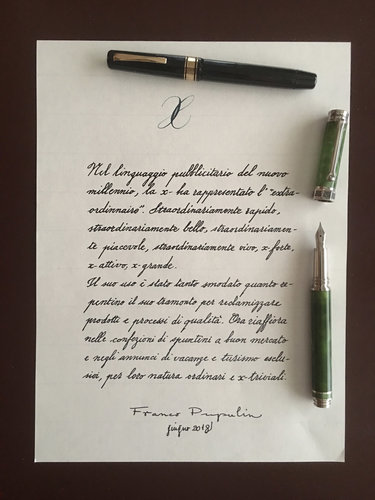 X
Nel linguaggio pubblicitario del nuovo
millennio, la x- ha rappresentato l'"extra-
ordinnairo". Straordinariamente rapido,
straordinariamente bello, straordinariamen-
te piacevole, straordinariamente vivo, x-forte,
x-attivo, x-grande.
Il suo uso è stato tanto smodato quanto re-
pentino il suo tramonto per reclamizzare
prodotti e processi di qualità. Ora riaffiora
nelle confezioni di spuntini a buon mercato
e negli annunci di vacanze e turismo esclu-
sivi, per loro natura ordinari e x-triviali.
Franco Pupulin
giugno 2018